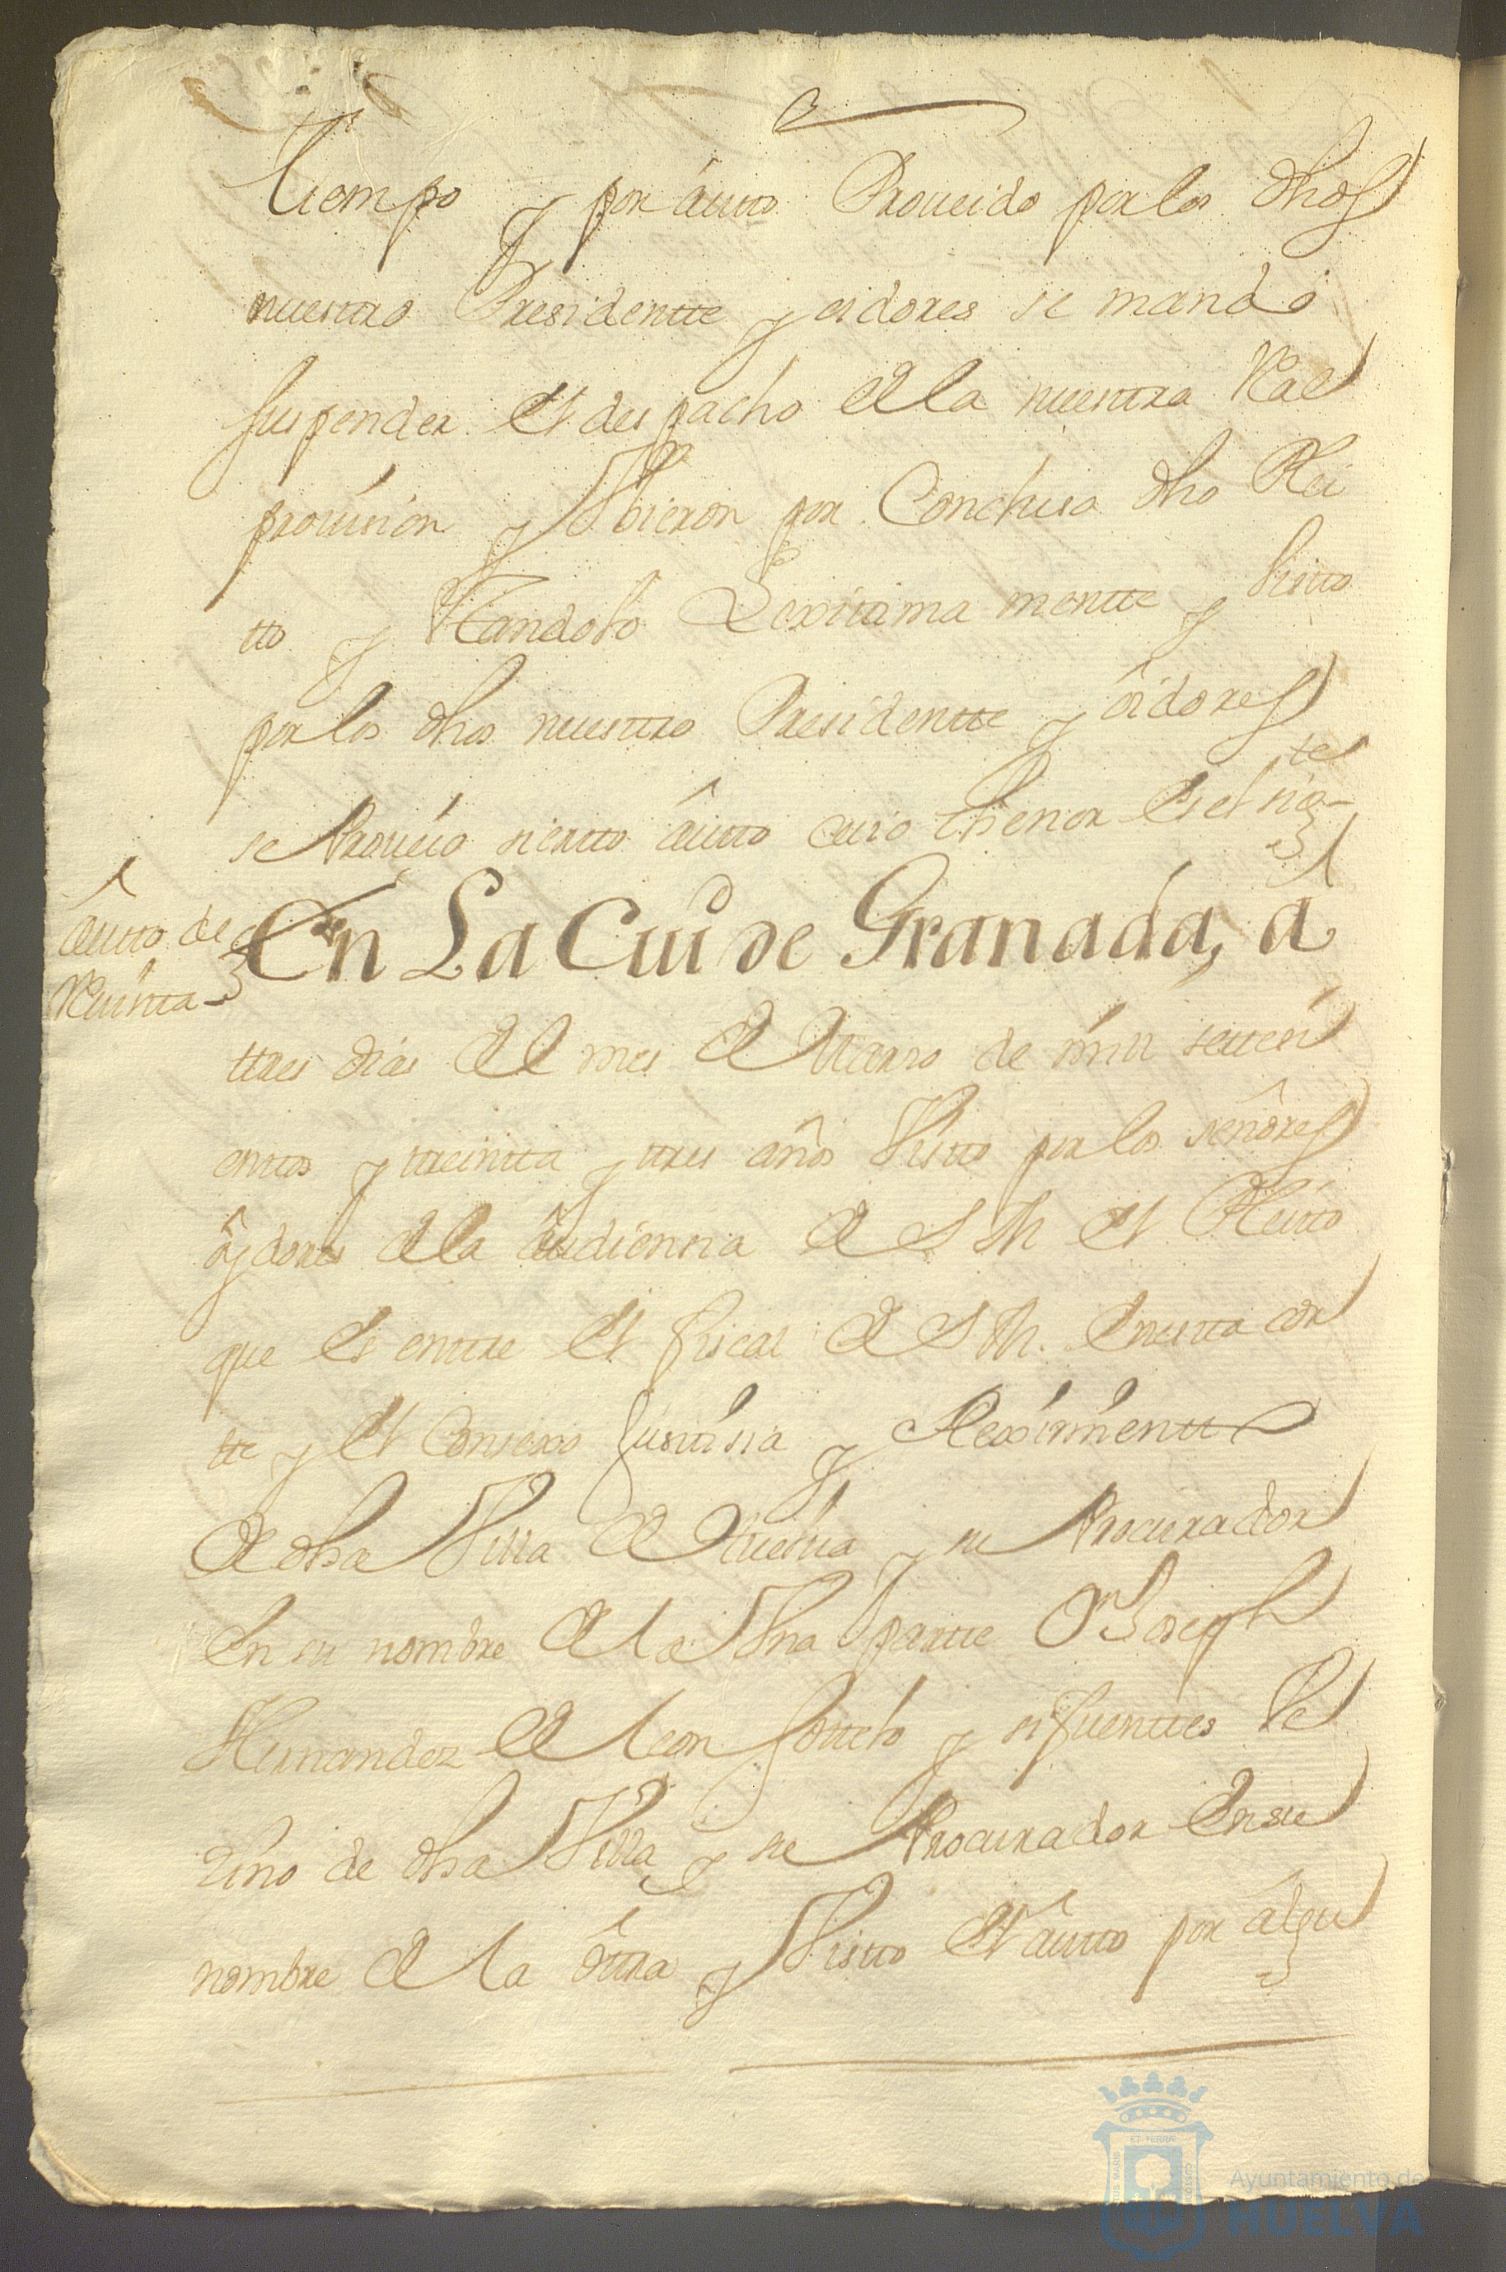 tiempo y por áutto Proueido por los dhos
nuestro Presidentte y oidores se mandó
suspender el despacho de la nuestra Rael
prouision y Vbieron por Conclusa dho Plei
tto y estandolo Lexitima mentte y Visto
por los dhos nuestro Presidentte y ôidores
se Proueio siertto âutto cuio thenor es el sigte
Autto de
Reuista
En La Ciud de Granada, á
ttres dias de el mes de Marzo de mill setteci
enttos y treintta y ttres años Visto por los señôres
ôydores de la âudiensia de S M el Pleitto
que es enttre el fiscal de S M. en estta cor
tte y el Consexo Justisia y Reximientto
de dha Villa de Huelua y su Procurador
en su nombre de la Vna partte Dn Joseph
Hernandez de leon Sottelo y sifuenttes Ve
zino de dha Villa y su Procurador en su
nombre de la ôttra y Visto el âutto por algu
Ayuntamiento de
HUELVA